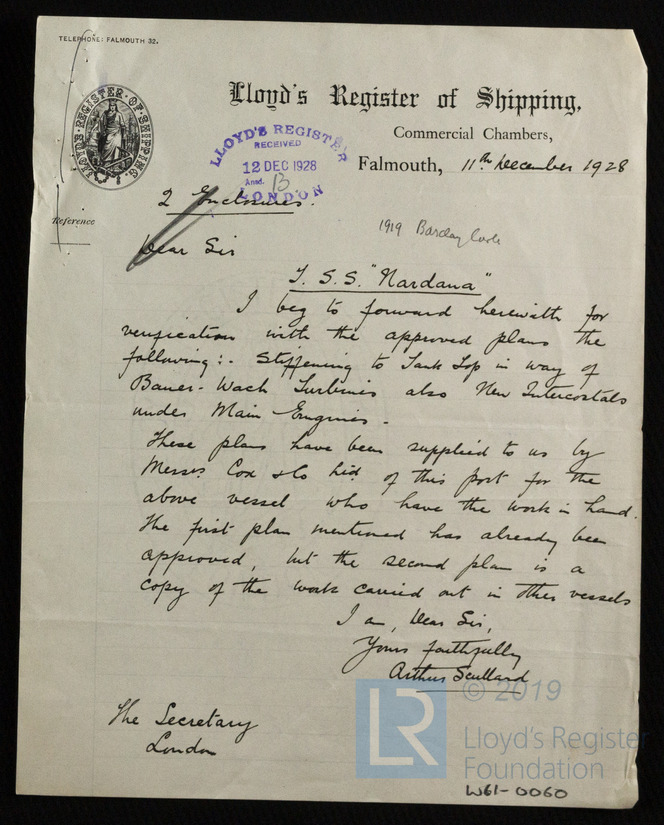 TELEPHONE: FALMOUTH 32.
LLOYD'S REGISTER OF SHIPPING
Lloyd's Register of Shipping,
Commercial Chambers,
Falmouth, 11th December 1928
LLOYD'S REGISTER
RECEIVED
12 DEC 1928
Ansd. B
LONDON
2 Enclosures.
Reference
1919 Barclay Curle
Dear Sir
T. S. S. "Nardana"
I beg to forward herewith for
verification with the approved plans the
following:- Stiffening to Tank Top in way of
Bauer-Wach Turbines also New Intercostals
under Main Engines.
These plans have been supplied to us by
Messrs Cox & Co Ltd of this port for the
above vessel who have the work in hand.
The first plan mentioned has already been
approved, but the second plan is a
copy of the work carried out in other vessels
I am, Dear Sir,
Yours faithfully
Arthur Scullard
The Secretary
London
LR
© 2019
Lloyd's Register
Foundation
W61-0060